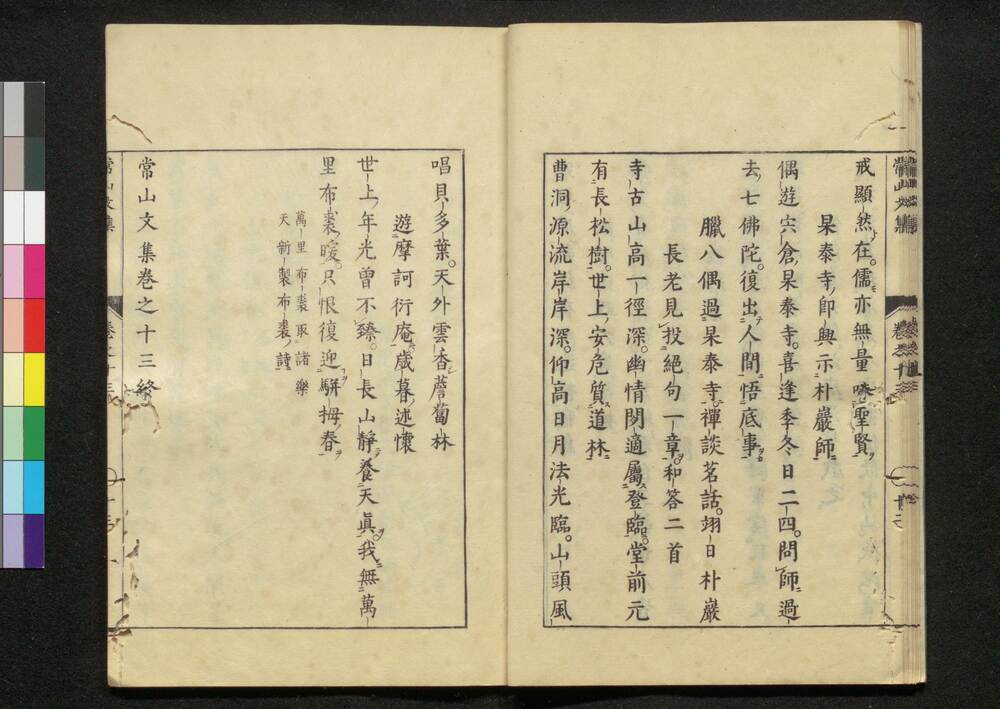 戒顯然在。儒亦無量樂聖賢
杲泰寺卽興示朴巖師
偶遊宍倉杲泰寺。喜逢季冬日二四。問師過
去七佛陀。復出人間悟底事
臘八偶過杲泰寺。禪談茗話。翊日朴巖
長老見投絕句一章。和答二首
寺古山高一徑深。幽情閑適屬登臨。堂前元
有長松樹。世上安危質道林
曹洞源流岸岸深。仰高日月法光臨。山頭風
唱貝多葉。天外雲杳薝蔔林
遊摩訶衍庵歲暮述懷
世上年光曾不臻。日長山靜養天眞。我無萬
里布裘暖。只恨復迎駢拇春
萬里布裘取諸樂
天新製布裘詩
常山文集卷之十三終
常山文集